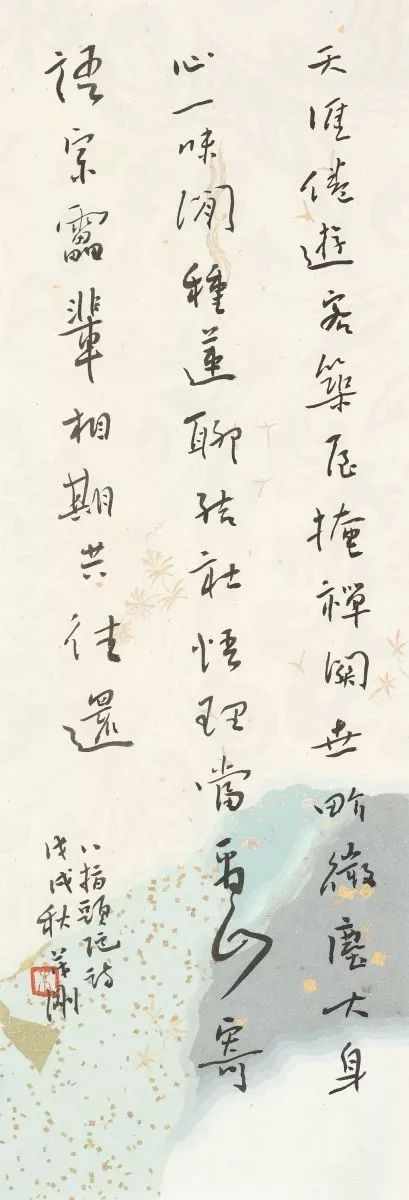 天涯倦遊客築居掩禪關世畍微塵大身
心一味閒種蓮聊結社悟理當看山寄
語宗雷輩相期共往還
八指頭陀詩
戊戌秋